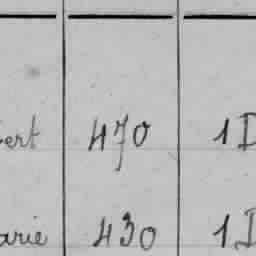 ert 470 1D
arie 430 1D